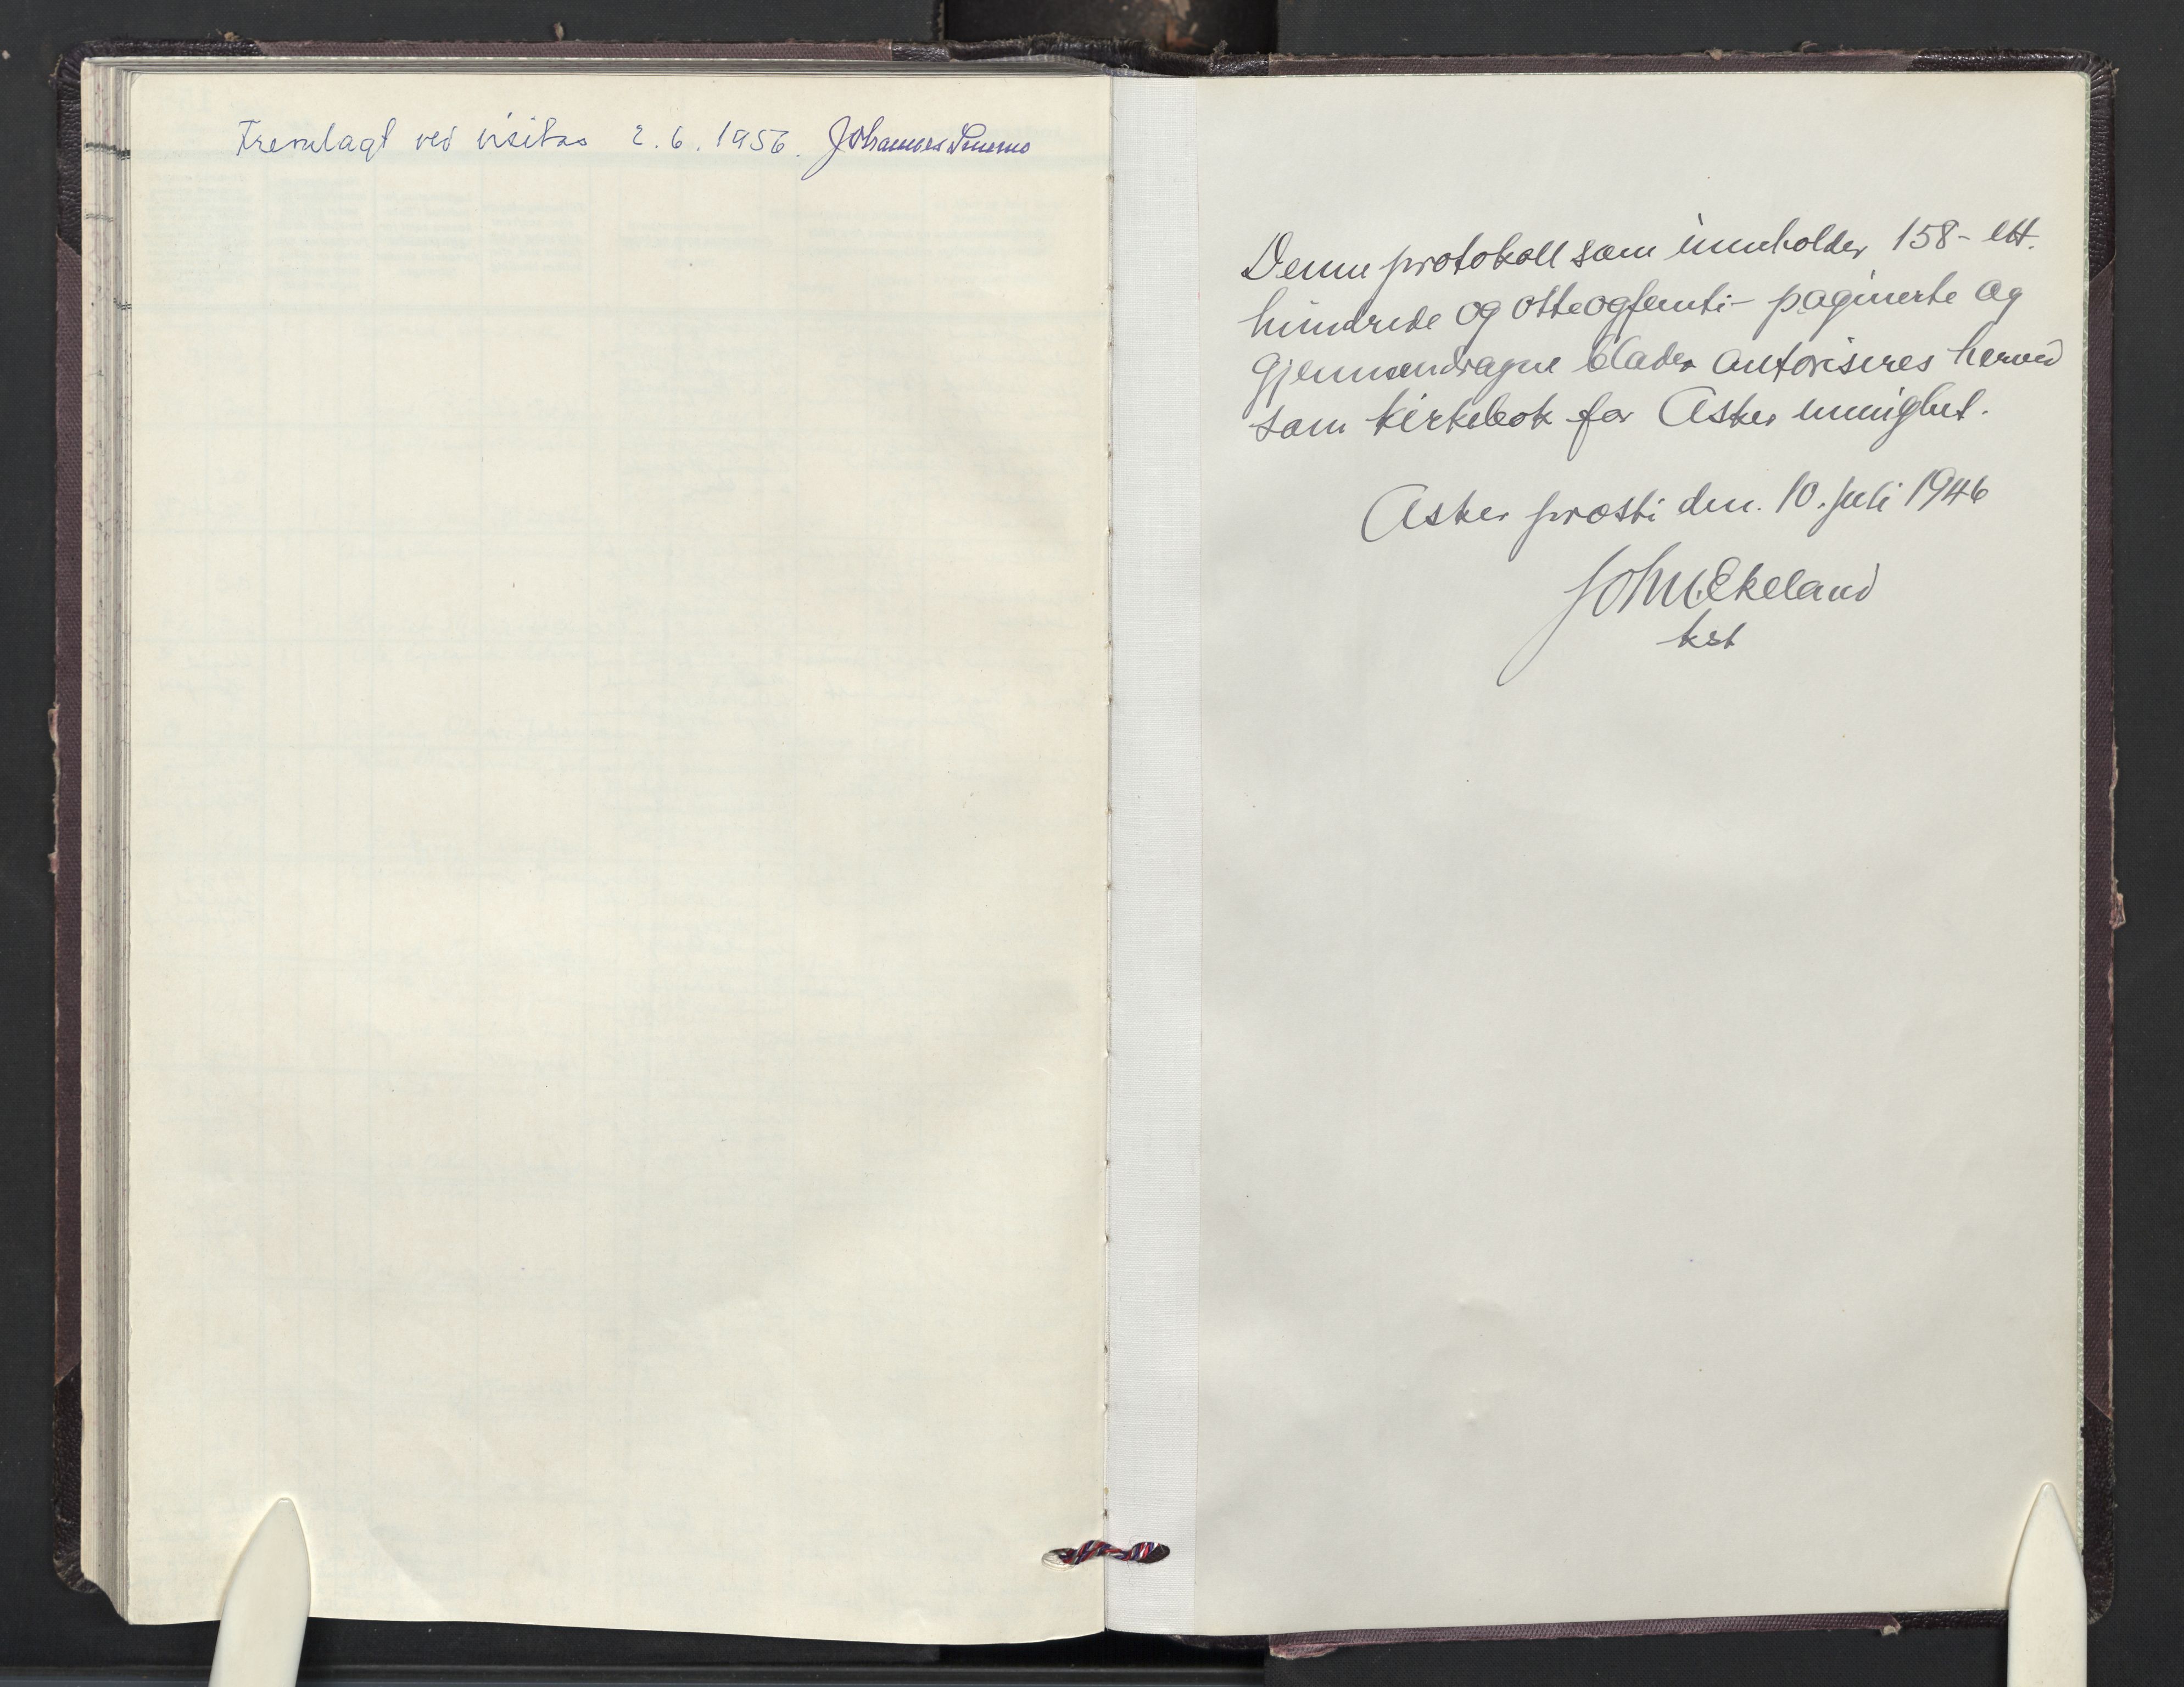 Fremlagt ved visitas 2.6.1956. Johannes Smemo
Denne protokoll som inneholder 158 - ett.
hundrede og otteogfemti - paginerte og
gjennemdragne blader autoriseres herved
som kirkebok for Asker menighet.
Asker prosti den. 10. juli 1946
Joh. Ekeland
kst